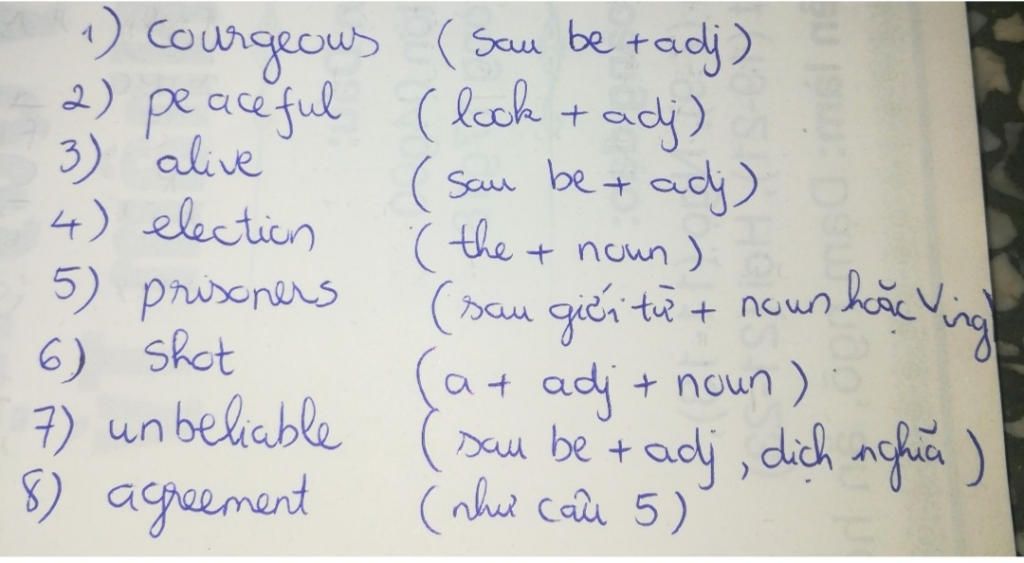 1) Courgeous (sau be + adj)
2) peaceful (look + adj)
3) alive (sau be + adj)
4) election (the + noun)
5) prisoners (sau giới từ + noun hoặc Ving)
6) shot (a + adj + noun)
7) unbeliable (sau be + adj, dịch nghiã)
8) agreement (như câu 5)